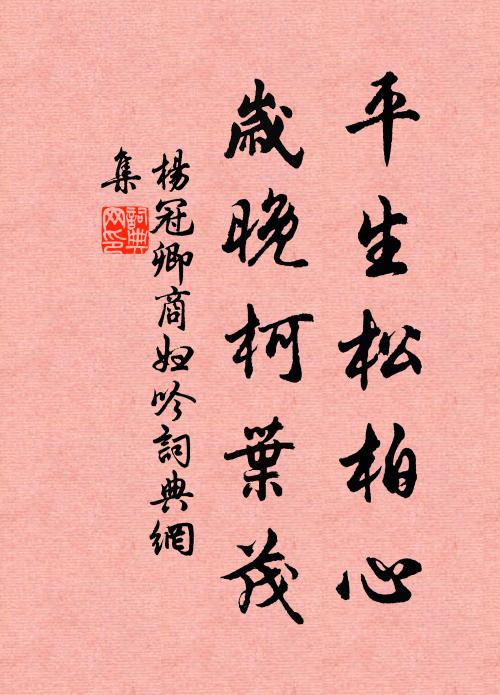 平生松柏心
歲晚柯葉茂
楊冠卿商婦吟詞典網
集
詞典
网印